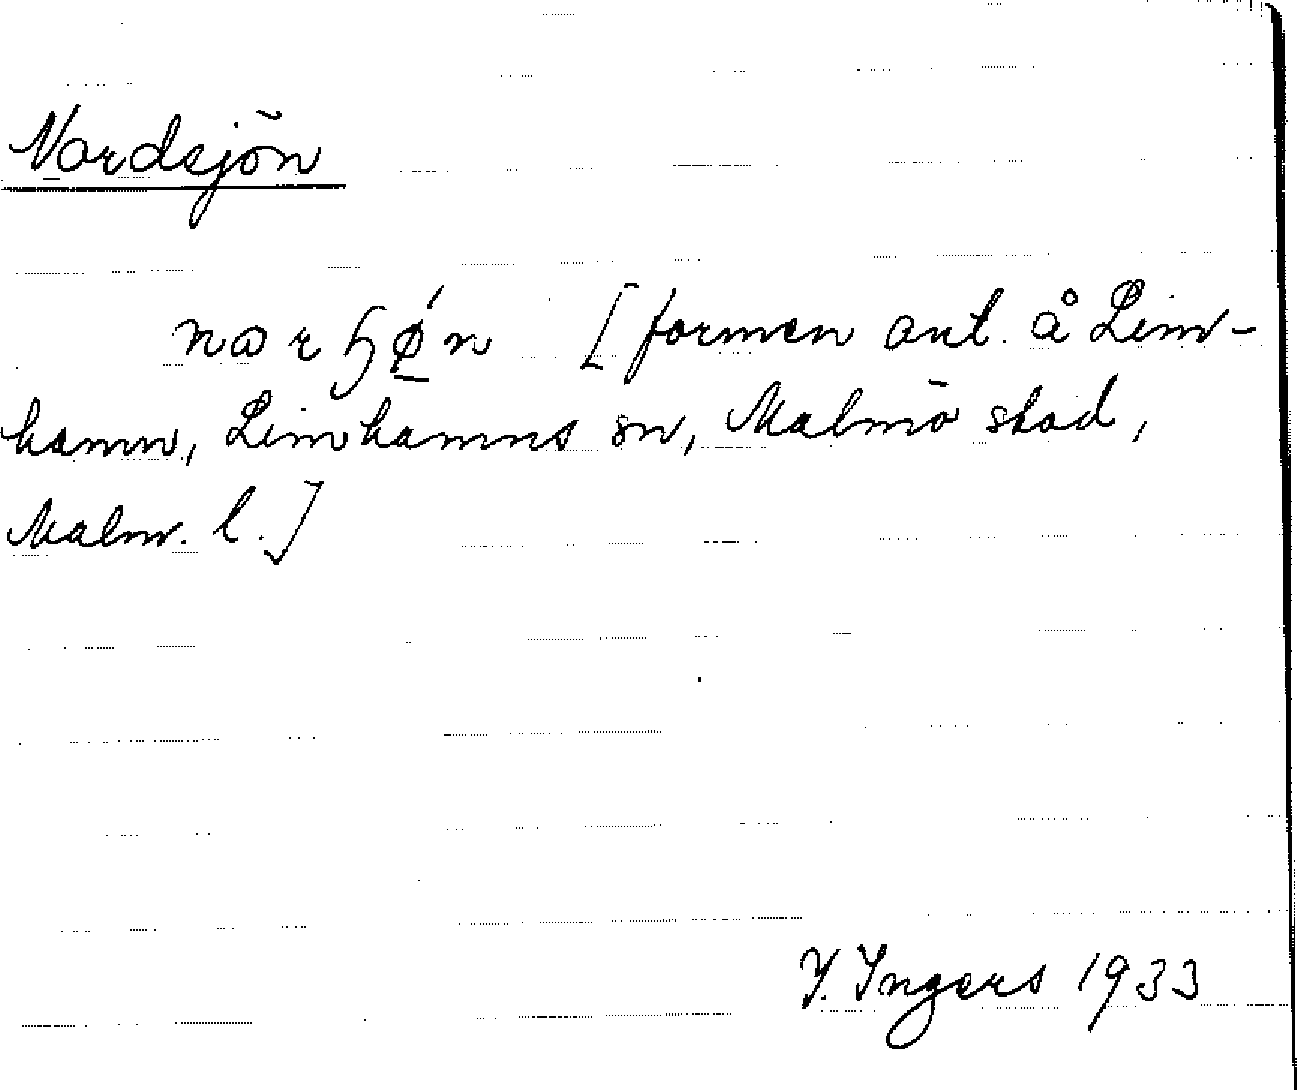 Nordsjön
narɧǿn [formen ant. å Lim-
hamn, Limhamns sn, Malmö stad,
Malm. l.]
I. Ingers 1933